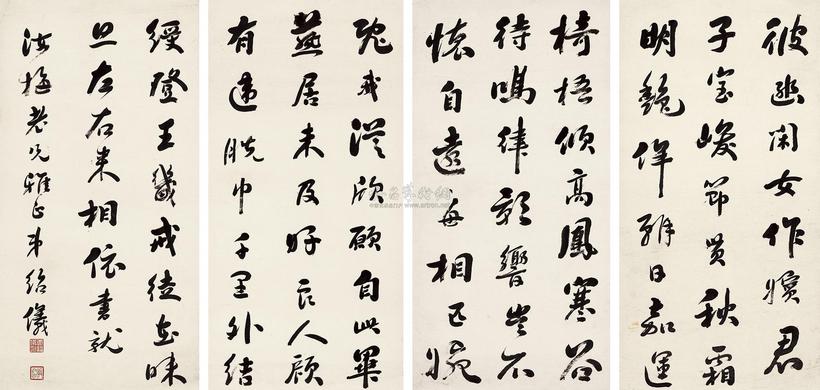 彼幽閑女作嬪君
子室峻節貫秋霜
明艷侔朝日嘉運
椅梧傾高鳳寒谷
待鳴律影響豈不
懷自遠每相匹婉
既我從欣願自此畢
燕居未及好良人顧
有違脫巾千里外結
綬登王畿戒徒在昧
旦左右來相依書就
汝梅老兄雅正弟紹儀